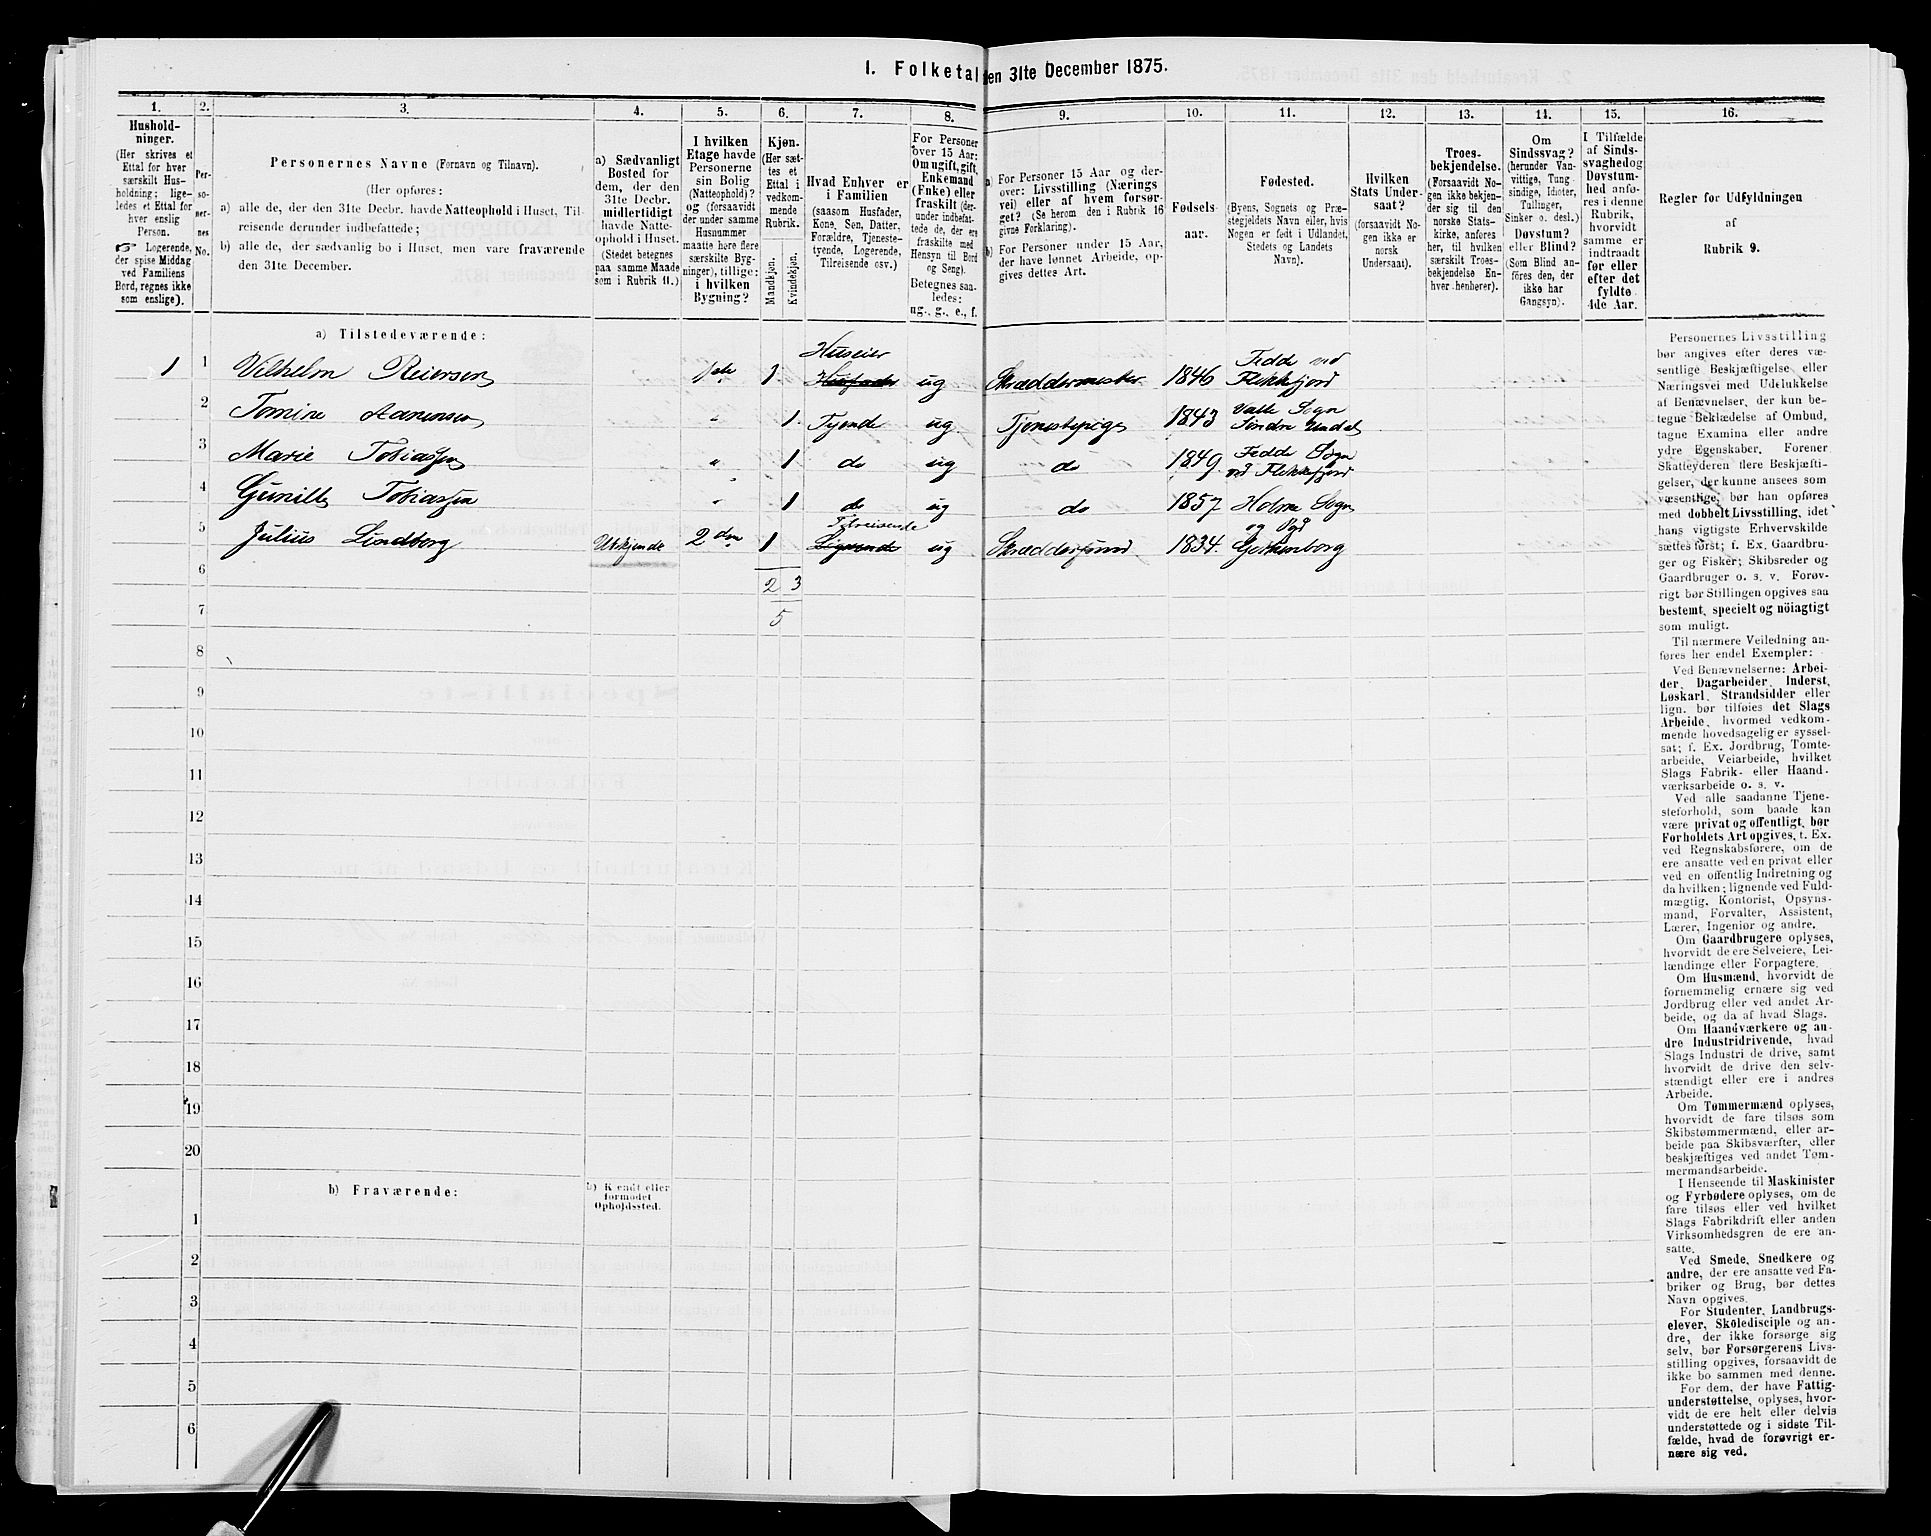 1. Folketal den 31te December 1875.
1.
Hushold-
ninger.
(Her skrives et
Ettal for hver
særskilt Hus-
holdning; lige-
ledes et Ettal for
hver enslig
Person.
☞ Logerende,
der spise Middag
ved Familiens
Bord, regnes ikke
som enslige).
2.
Per-
so-
ner-
nes
No.
3.
Personernes Navne (Fornavn og Tilnavn).
(Her opføres:
a) alle de, der den 31te Decbr. havde Natteophold i Huset, Til-
reisende derunder indbefattede;
b) alle de, der sædvanlig bo i Huset, men vare fraværende
den 31te December.
4.
a) Sædvanligt
Bosted for
dem, der den
31te Decbr.
midlertidigt
havde Natte-
ophold i Huset.
(Stedet betegnes
paa samme Maade
som i Rubrik 11.)
5.
I hvilken
Etage havde
Personerne
sin Bolig
(Natteophold)?
og (forsaavidt
der under samme
Husnummer
maatte høre flere
særskilte Byg-
ninger), tillige:
i hvilken
Bygning?
6.
Kjøn.
(Her sæt-
tes et
Ettal i
vedkom-
mende
Rubrik.
Mandkjøn.
Kvindekjøn.
7.
Hvad Enhver er
i Familien
(saasom Husfader,
Kone, Søn, Datter,
Forældre, Tjeneste-
tyende, Logerende,
Tilreisende osv.)
8.
For Personer
over 15 Aar:
Om ugift, gift,
Enkemand
(Enke) eller
fraskilt (der-
under indbefat-
tede de, der ere
fraskilte med
Hensyn til Bord
og Seng).
Betegnes saa-
ledes:
ug., g., e., f.
9.
a) For Personer 15 Aar og der-
over: Livsstilling (Nærings
vei) eller af hvem forsør-
get? (Se herom den i Rubrik 16
givne Forklaring).
b) For Personer under 15 Aar,
der have lønnet Arbeide, op-
gives dettes Art.
10.
Fødsels-
aar.
11.
Fødested.
(Byens, Sognets og Præ-
stegjeldets Navn eller, hvis
Nogen er født i Udlandet,
Stedets og Landets
Navn).
12.
Hvilken
Stats Under-
saat?
(forsaavidt No-
gen ikke er
norsk
Undersaat).
13.
Troes-
bekjendelse.
(Forsaavidt No-
gen ikke bekjen-
der sig til den
norske Stats-
kirke, anføres
her, til hvilken
særskilt Troes-
bekjendelse En-
hver henhører).
14.
Om
Sindssvag?
(herunder Van-
vittige, Tung
sindige, Idioter,
Tullinger,
Sinker o. desl.)
Døvstum?
eller Blind?
(Som Blind an-
føres den, der
ikke har
Gangsyn).
15.
I Tilfælde
af Sinds-
svaghed og
Døvstum-
hed anfø-
res i denne
Rubrik,
hvorvidt
samme er
indtraadt
før eller
efter det
fyldte
4de Aar.
16.
Regler for Udfyldningen
af
Rubrik 9.
a) Tilstedeværende:
1 1 Vilhelm Reiersen 1ste 1 Huseier Husfader ug Skræddermester 1846 Fedde ved Flekkefjord
2 Tomine Aanensen " 1. Tyende ug Tjenestepige 1843 Valle Sogn Søndre Undal
3 Marie Tobiassen " 1 do ug do 1849. Fedde Sogn ved Flekkefjord
4 Gunille Tobiassen " 1 do ug do 1857 Holme Sogn og Pgd
5 Julius Lindborg Ubekjendt 2den 1 Tilreisende Logerende ug Skræddersvend 1834. Gothenborg
6 2 3
7 5
8
9
10
11
12
13
14
15
16
17
18
19
20
b) Fraværende:
b) Kjendt eller
formodet
Opholdssted.
1
2
3
4
5
6
Personernes Livsstilling
bør angives efter deres væ-
sentlige Beskjæftigelse eller
Næringsvei med Udelukkelse
af Benævnelser, der kun be-
tegne Beklædelse af Ombud,
tagne Examina eller andre
ydre Egenskaber. Forener
Skatteyderen flere Beskjæfti-
gelser, der kunne ansees som
væsentlige, bør han opføres
med dobbelt Livsstilling, idet
hans vigtigste Erhvervskilde
sættes først; f. Ex. Gaardbru-
ger og Fisker; Skibsreder og
Gaardbruger o. s. v. Forøv-
rigt bør Stillingen opgives saa
bestemt, specielt og nöiagtigt
som muligt.
Til nærmere Veiledning an-
føres her endel Exempler:
Ved Benævnelserne: Arbei-
der, Dagarbeider, Inderst,
Løskarl, Strandsidder eller
lign. bør tilføies det Slags
Arbeide, hvormed vedkom-
mende hovedsagelig er syssel-
sat; f. Ex. Jordbrug, Tomte-
arbeide, Veiarbeide, hvilket
Slags Fabrik- eller Haand-
værksarbeide o. s. v.
Ved alle saadanne Tjene-
steforhold, som baade kan
være privat og offentligt, bør
Forholdets Art opgives, t. Ex.
ved Regnskabsførere, om de
ere ansatte ved en privat eller
ved en offentlig Indretning og
da hvilken; lignende ved Fuld-
mægtig, Kontorist, Opsyns-
mand, Forvalter, Assistent,
Lærer, Ingeniør og andre.
Om Gaardbrugere oplyses,
hvorvidt de ere Selveiere, Lei-
lændinge eller Forpagtere.
Om Husmænd, hvorvidt de
fornemmelig ernære sig ved
Jordbrug eller ved andet Ar-
beide, og da af hvad Slags.
Om Haandværkere og an-
dre Industridrivende, hvad
Slags Industri de drive, samt
hvorvidt de drive den selv-
stændigt eller ere i andres
Arbeide.
Om Tømmermænd oplyses,
hvorvidt de fare tilsøs som
Skibstømmermænd, eller ar-
beide paa Skibsværfter, eller
beskjæftiges ved andet Tøm-
mermandsarbeide.
I Henseende til Maskinister
og Fyrbødere oplyses, om de
fare tilsøs eller ved hvilket
Slags Fabrikdrift eller anden
Virksomhedsgren de ere an-
satte.
Ved Smede, Snedkere og
andre, der ere ansatte ved Fa-
briker og Brug, bør dettes
Navn opgives.
For Studenter, Landbrugs-
elever, Skoledisciple og an-
dre, der ikke forsørge sig
selv, bør Forsørgerens Livs-
stilling opgives, forsaavidt de
ikke bo sammen med denne.
For dem, der have Fattig-
understøttelse, oplyses, hvor-
vidt de ere helt eller delvis
understøttede og i sidste Til-
fælde, hvad de forøvrigt er-
nære sig ved.